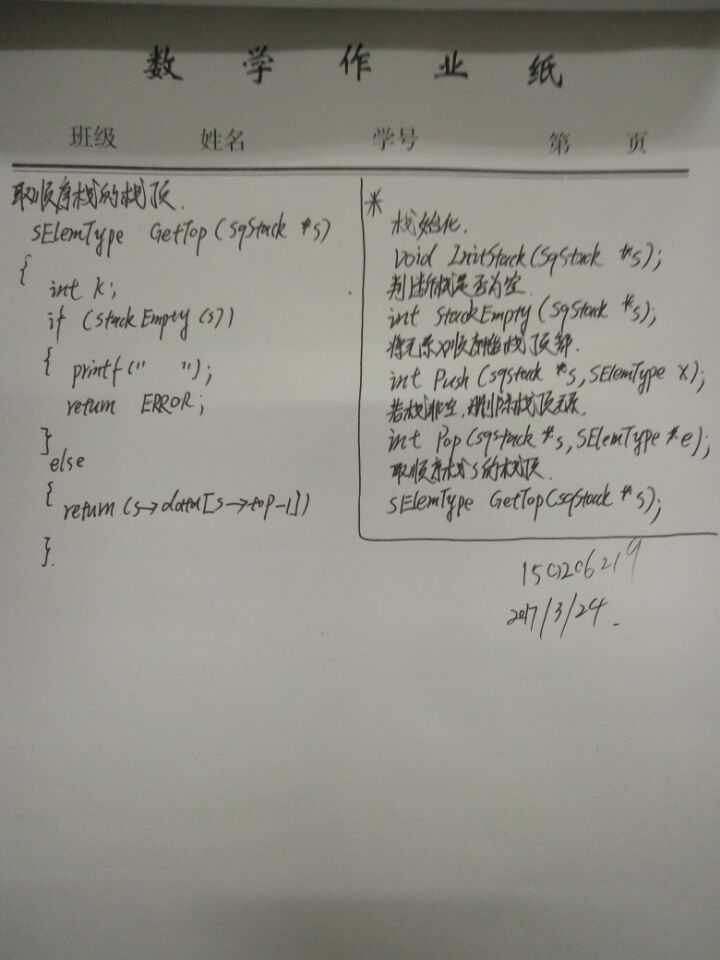 数学作业纸
班级 姓名 学号 第 页
取顺序栈的栈顶.
SElemType GetTop(SqStack *s)
{
int k;
if (stackEmpty(s))
{ printf(" ");
return ERROR;
}
else
{ return (s→data[s→top-1])
}.
*
栈始化.
void InitStack(SqStack *s);
判断栈是否为空.
int StackEmpty(SqStack *s);
将元素x顺序栈栈顶部.
int Push(sqstack *s, SElemType x);
若栈非空,删除栈顶元素.
int Pop(sqstack *s, SElemType *e);
取顺序栈s的栈顶.
SElemType GetTop(sqstack *s);
150206219
2017/3/24.